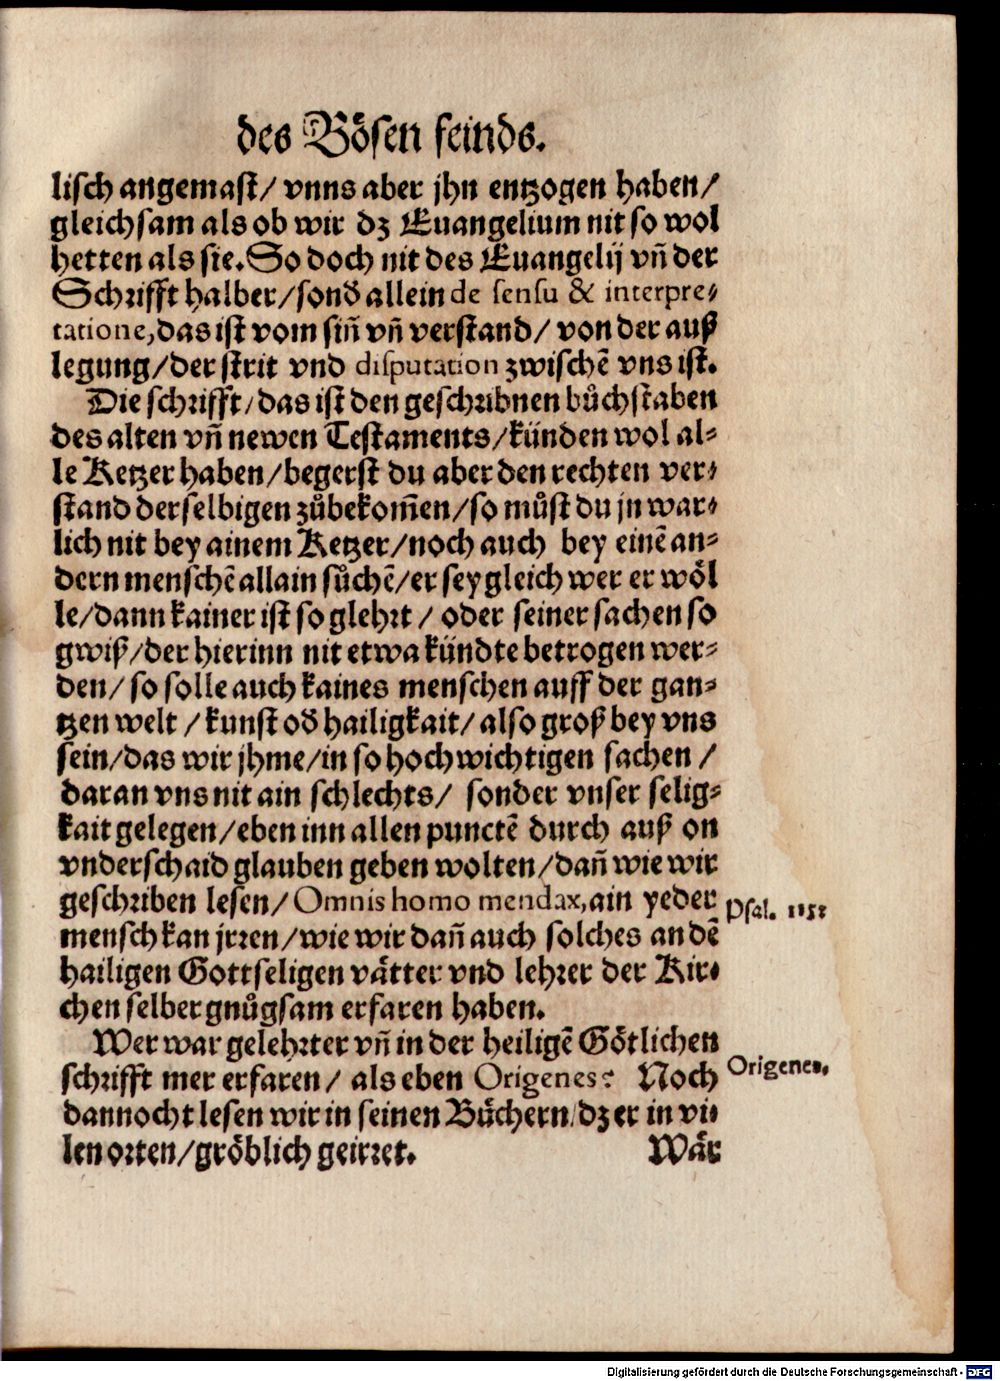 des Bösen feinds.
lisch angemast/ vnns aber jhn entzogen haben/
gleichsam als ob wir dz Euangelium nit so wol
hetten als sie. So doch nit des Euangelij vn̄ der
Schrifft halber/sond̕ allein de sensu & interpre-
tatione, das ist vom sin̄ vn̄ verstand/ von der auß
legung/der strit vnd disputation zwischē vns ist.
Die schrifft/das ist den geschribnen bůchstaben
des alten vn̄ newen Testaments/künden wol al-
le Ketzer haben/begerst du aber den rechten ver-
stand derselbigen zůbekom̄en/so můst du jn war-
lich nit bey ainem Ketzer/noch auch bey einē an-
dern menschē allain sůchē/er sey gleich wer er wöl
le/dann kainer ist so glehrt/ oder seiner sachen so
gwiß/der hierinn nit etwa kündte betrogen wer-
den/ so solle auch kaines menschen auff der gan-
tzen welt/ kunst od̕ hailigkait/ also groß bey vns
sein/das wir jhme/in so hochwichtigen sachen/
daran vns nit ain schlechts/ sonder vnser selig-
kait gelegen/eben inn allen punctē durch auß on
vnderschaid glauben geben wolten/dan̄ wie wir
geschriben lesen/ Omnis homo mendax, ain yeder
Psal. 115
mensch kan jrren/wie wir dan̄ auch solches an dē
hailigen Gottseligen vätter vnd lehrer der Kir-
chen selber gnůgsam erfaren haben.
Wer war gelehrter vn̄ in der heiligē Götlichen
schrifft mer erfaren/ als eben Origenes? Noch
Origenes.
dannocht lesen wir in seinen Büchern/dz er in vi-
len orten/gröblich geirret. Wär
Digitalisierung gefördert durch die Deutsche Forschungsgemeinschaft - DFG